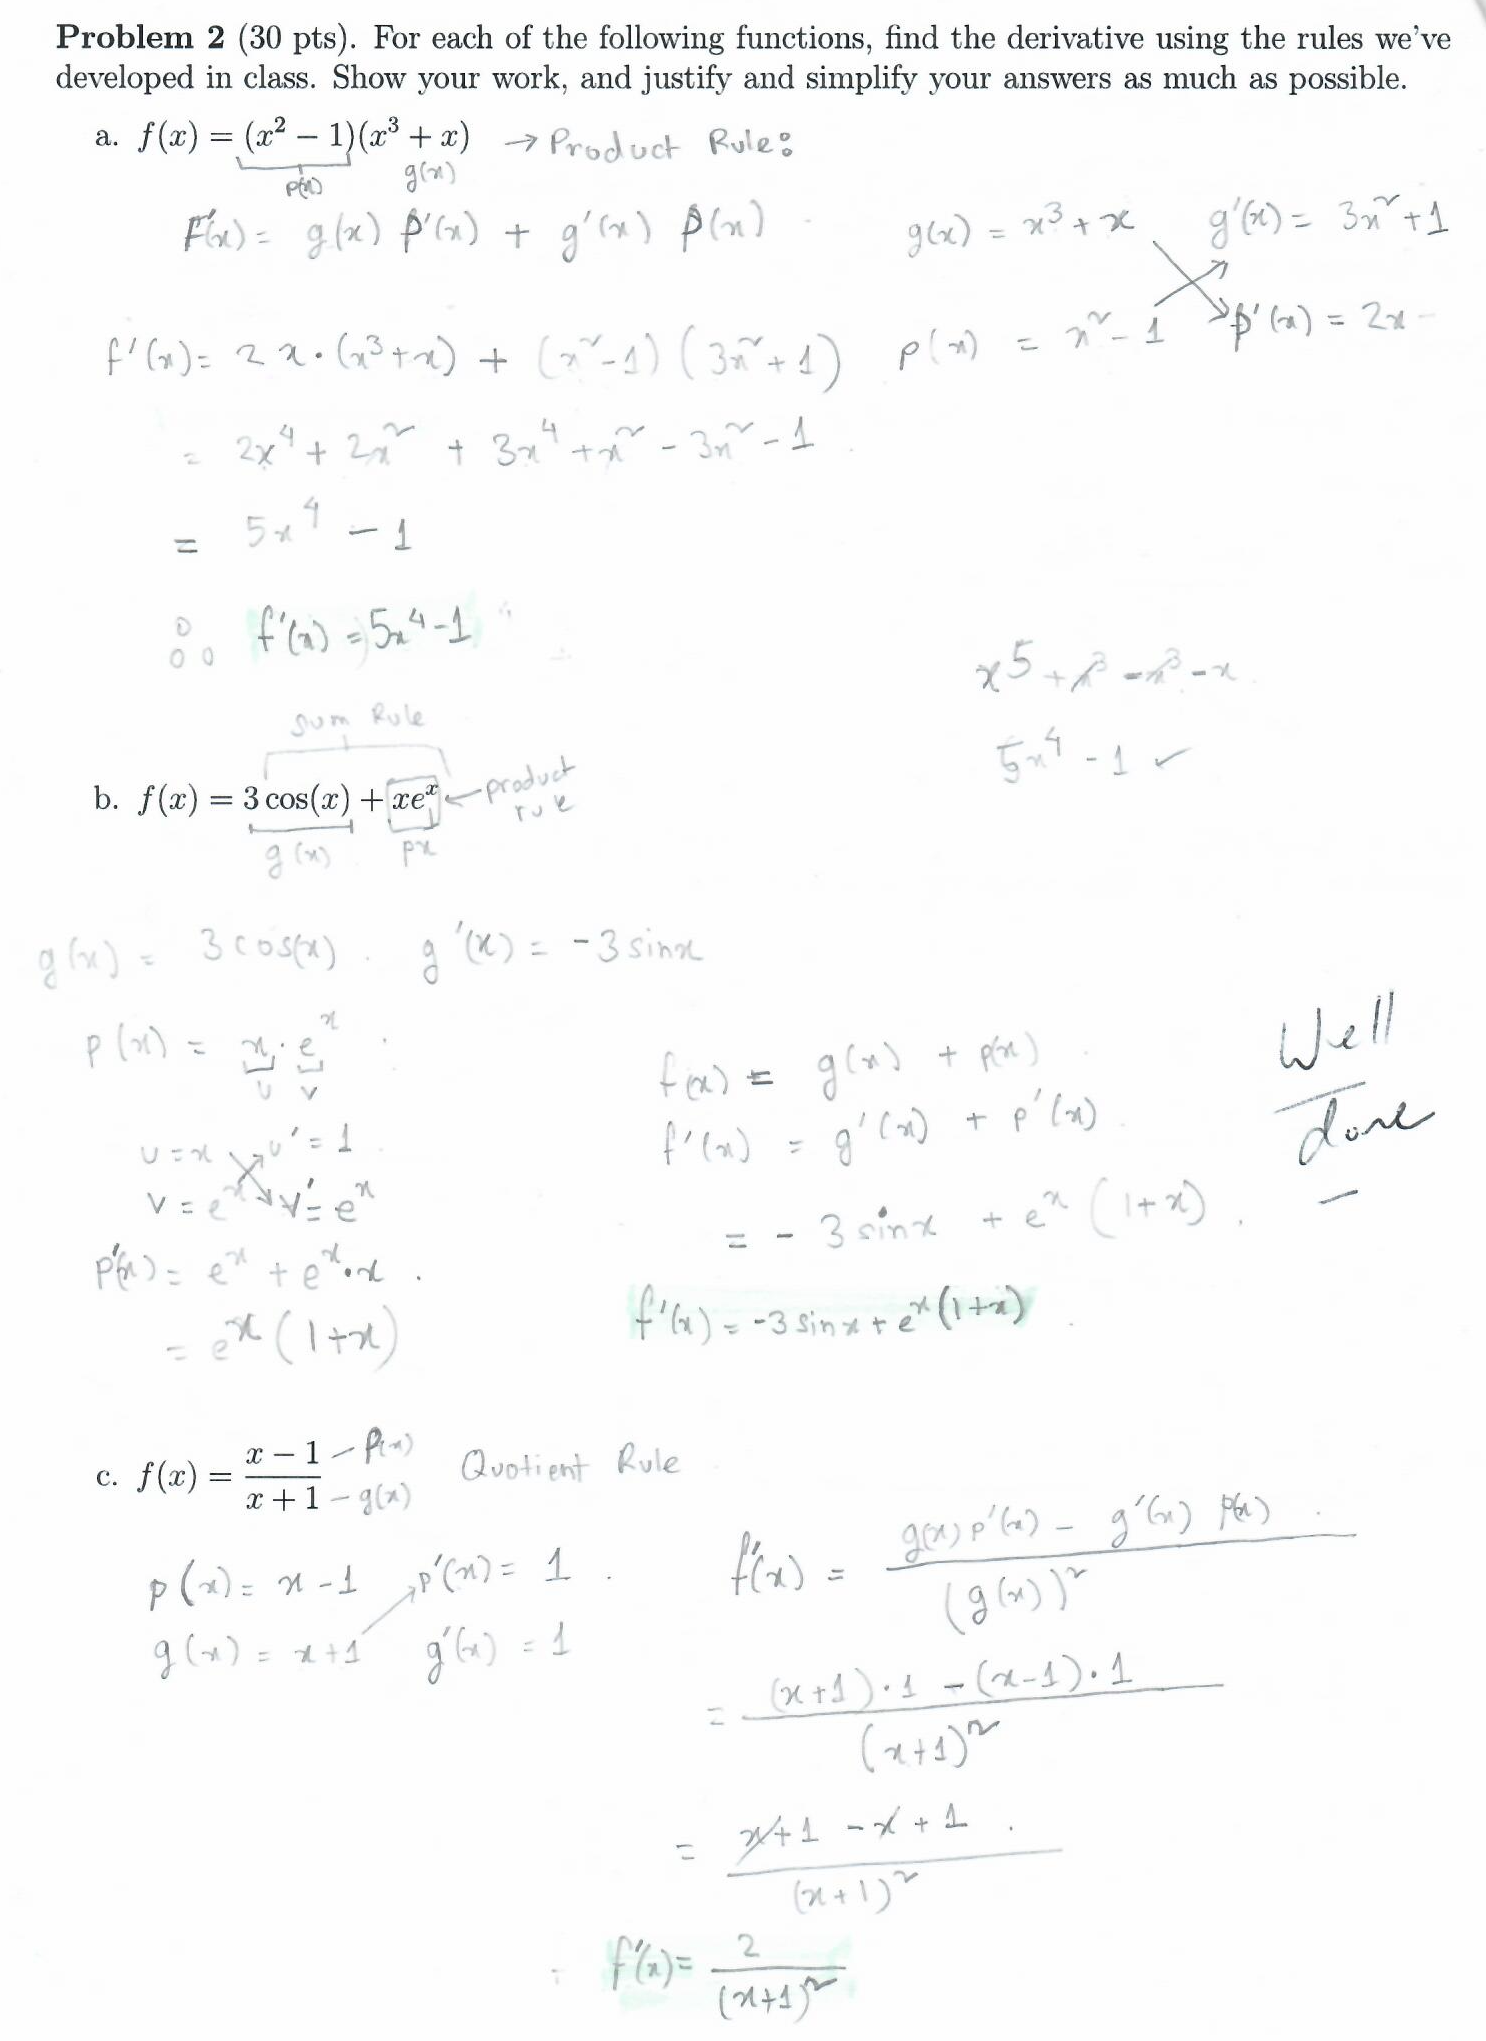 Problem 2 (30 pts). For each of the following functions, find the derivative using the rules we've
developed in class. Show your work, and justify and simplify your answers as much as possible.
a. f(x) = (x² − 1)(x³ + x) → Product Rule:
p(x) g(x)
F'(x) = g(x) p'(x) + g'(x) p(x)
g(x) = x³ + x g'(x) = 3x² + 1
p(x) = x² - 1 p'(x) = 2x
f'(x) = 2x · (x³ + x) + (x² - 1) (3x² + 1)
= 2x⁴ + 2x² + 3x⁴ + x² - 3x² - 1
= 5x⁴ - 1
∴ f'(x) = 5x⁴ - 1
x⁵ + x³ - x³ - x
5x⁴ - 1 ✓
Sum Rule
b. f(x) = 3 cos(x) + xeˣ ← product rule
g(x) px
g(x) = 3 cos(x) . g'(x) = -3 sinx
p(x) = x · eˣ
u v
u = x u' = 1
v = eˣ v' = eˣ
p'(x) = eˣ + eˣ · x .
= eˣ (1+x)
f(x) = g(x) + p(x)
f'(x) = g'(x) + p'(x)
= - 3 sinx + eˣ (1+x) .
f'(x) = -3 sinx + eˣ (1+x)
Well
done
c. f(x) = (x − 1)/(x + 1) - P(x) - g(x) Quotient Rule
p(x) = x - 1 p'(x) = 1 .
g(x) = x + 1 g'(x) = 1
f'(x) = (g(x) p'(x) - g'(x) p(x))/(g(x))²
= ((x+1) · 1 - (x-1) · 1)/(x+1)²
= (x + 1 - x + 1)/(x+1)²
f'(x) = 2/(x+1)²